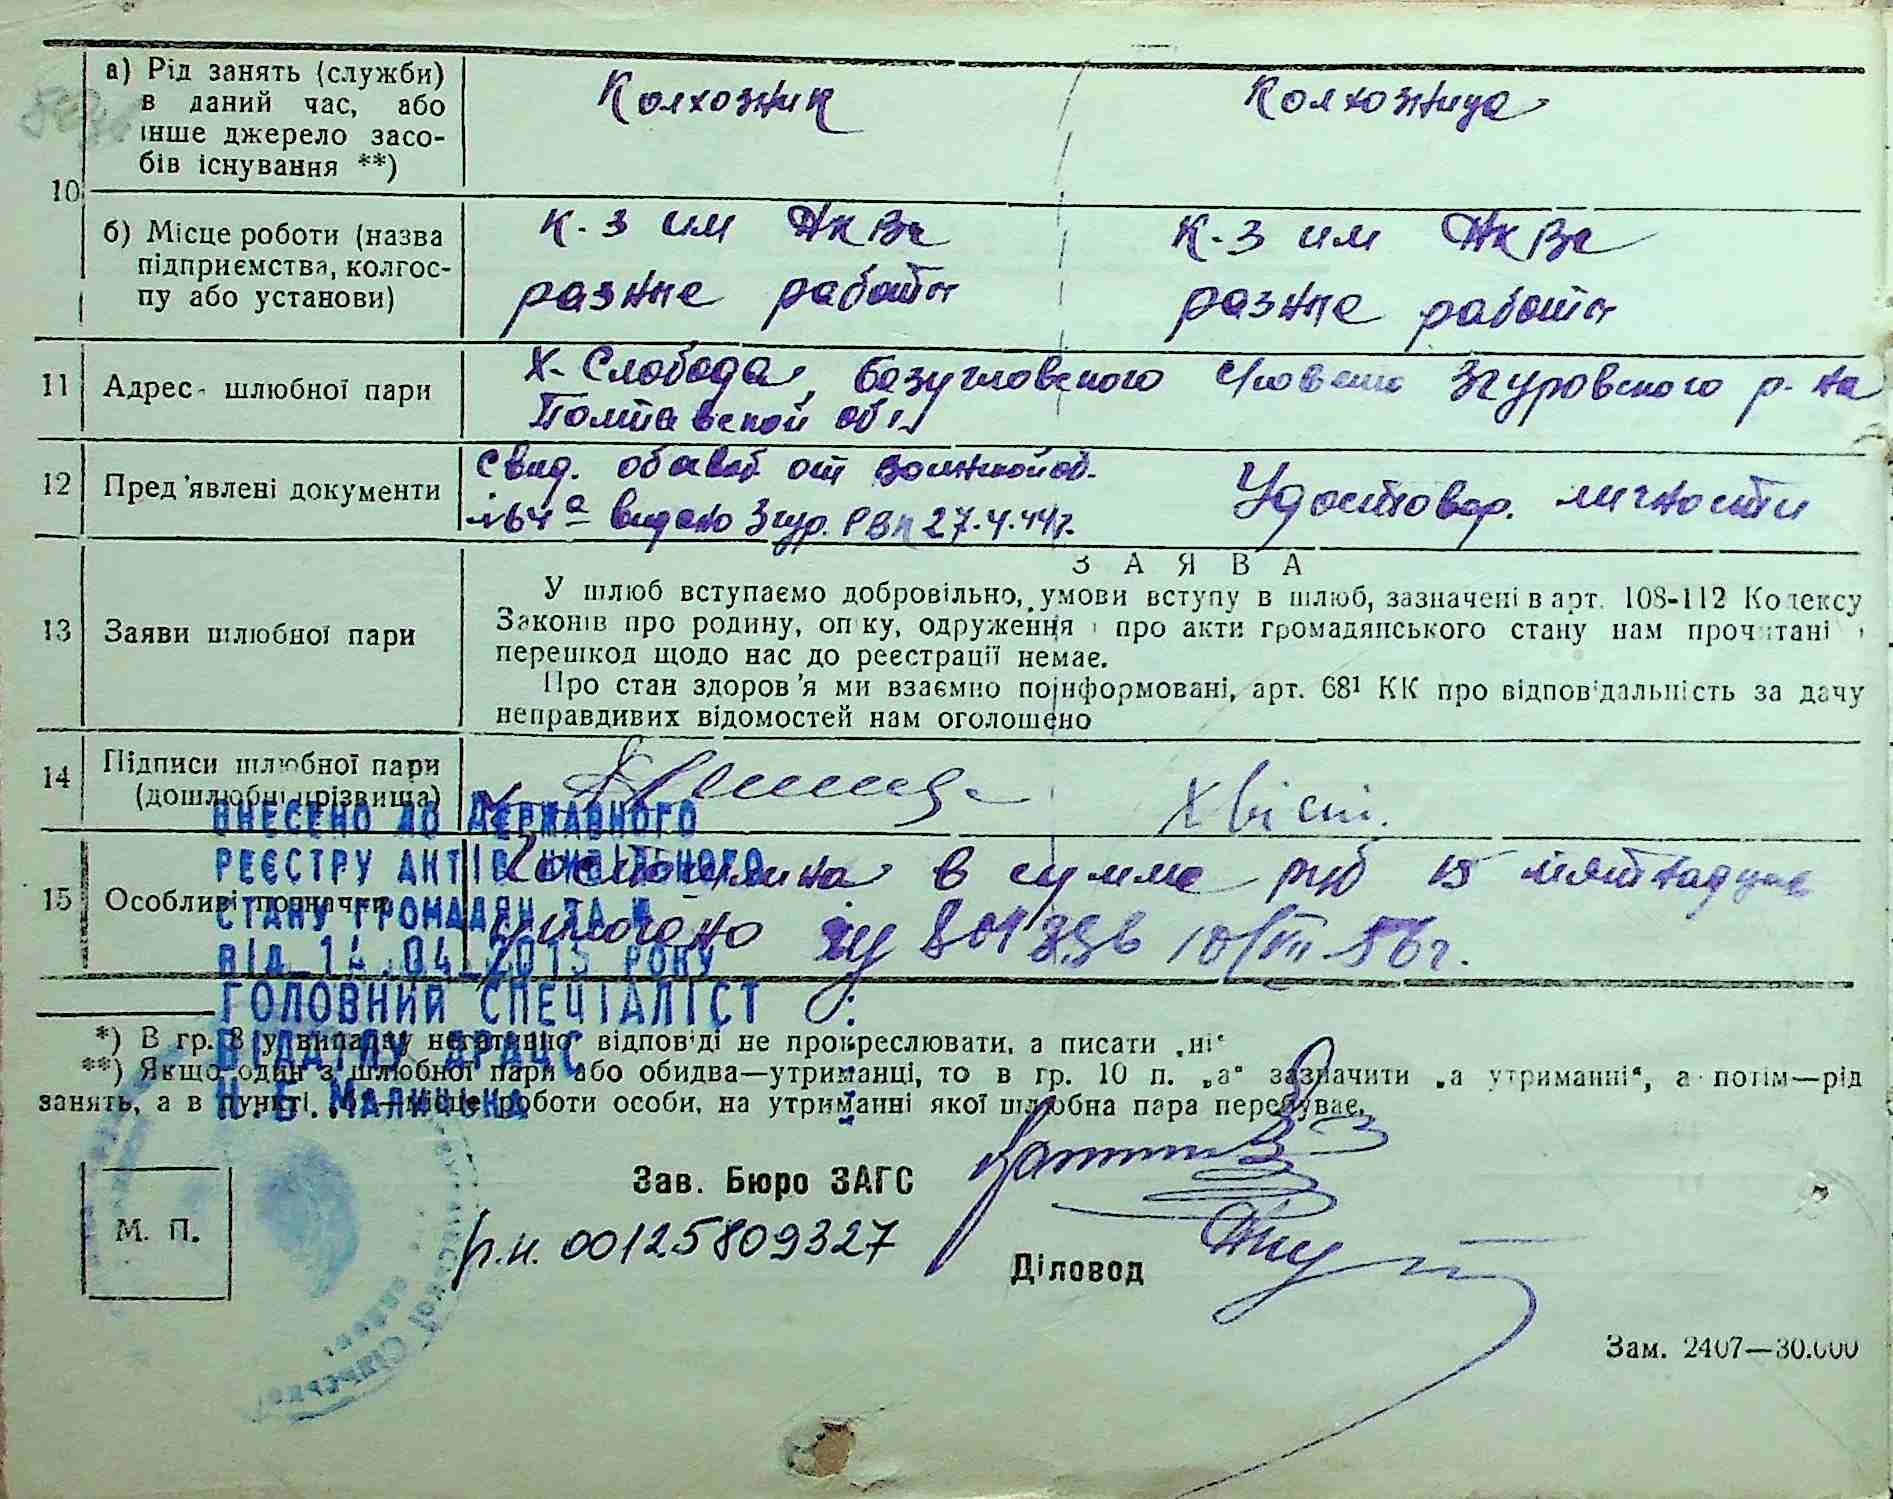 а) Рід занять (служби)
в даний час, або
інше джерело засо-
бів існування **)
Колхозник
Колхозница
10
б) Місце роботи (назва
підприємства, колгос-
пу або установи)
к-з им НКВД
разные работы
к-з им НКВД
разные работы
11 Адрес- шлюбної пари
Х-Слобода, Безугловского с/совета Згуровского р-на
Полтавской обл
12 Пред'явлені документи
Свид. от
выдано Згур. РВК 27.4.44г.
Удостовер. личности
З А Я В А
13 Заяви шлюбної пари
У шлюб вступаємо добровільно, умови вступу в шлюб, зазначені в арт. 108-112 Кодексу
Законів про родину, опіку, одруження і про акти громадянського стану нам прочитані і
перешкод щодо нас до реєстрації немає.
Про стан здоров'я ми взаємно поінформовані, арт. 68¹ КК про відповідальність за дачу
неправдивих відомостей нам оголошено
14 Підписи шлюбної пари
(дошлюбні прізвища)
Хвіст.
15 Особливі позначки
Госпошлина в сумме руб 15 пятнадцать
10/VIII-56г.
ВНЕСЕНО ДО ДЕРЖАВНОГО
РЕЄСТРУ АКТІВ ЦИВІЛЬНОГО
СТАНУ ГРОМАДЯН ЗА №
ВІД 14.04.2015 РОКУ
ГОЛОВНИЙ СПЕЦІАЛІСТ
ВІДДІЛУ ДРАЦС
*) В гр. 8 у випадку негативної відповіді не прокреслювати, а писати „ні“
**) Якщо один з шлюбної пари або обидва—утриманці, то в гр. 10 п. „а“ зазначити „а утриманні“, а потім—рід
занять, а в пункті місце роботи особи, на утриманні якої шлюбна пара перебуває.
Зав. Бюро ЗАГС
М. П.
р.н. 00125809327
Діловод
Зам. 2407—30.000